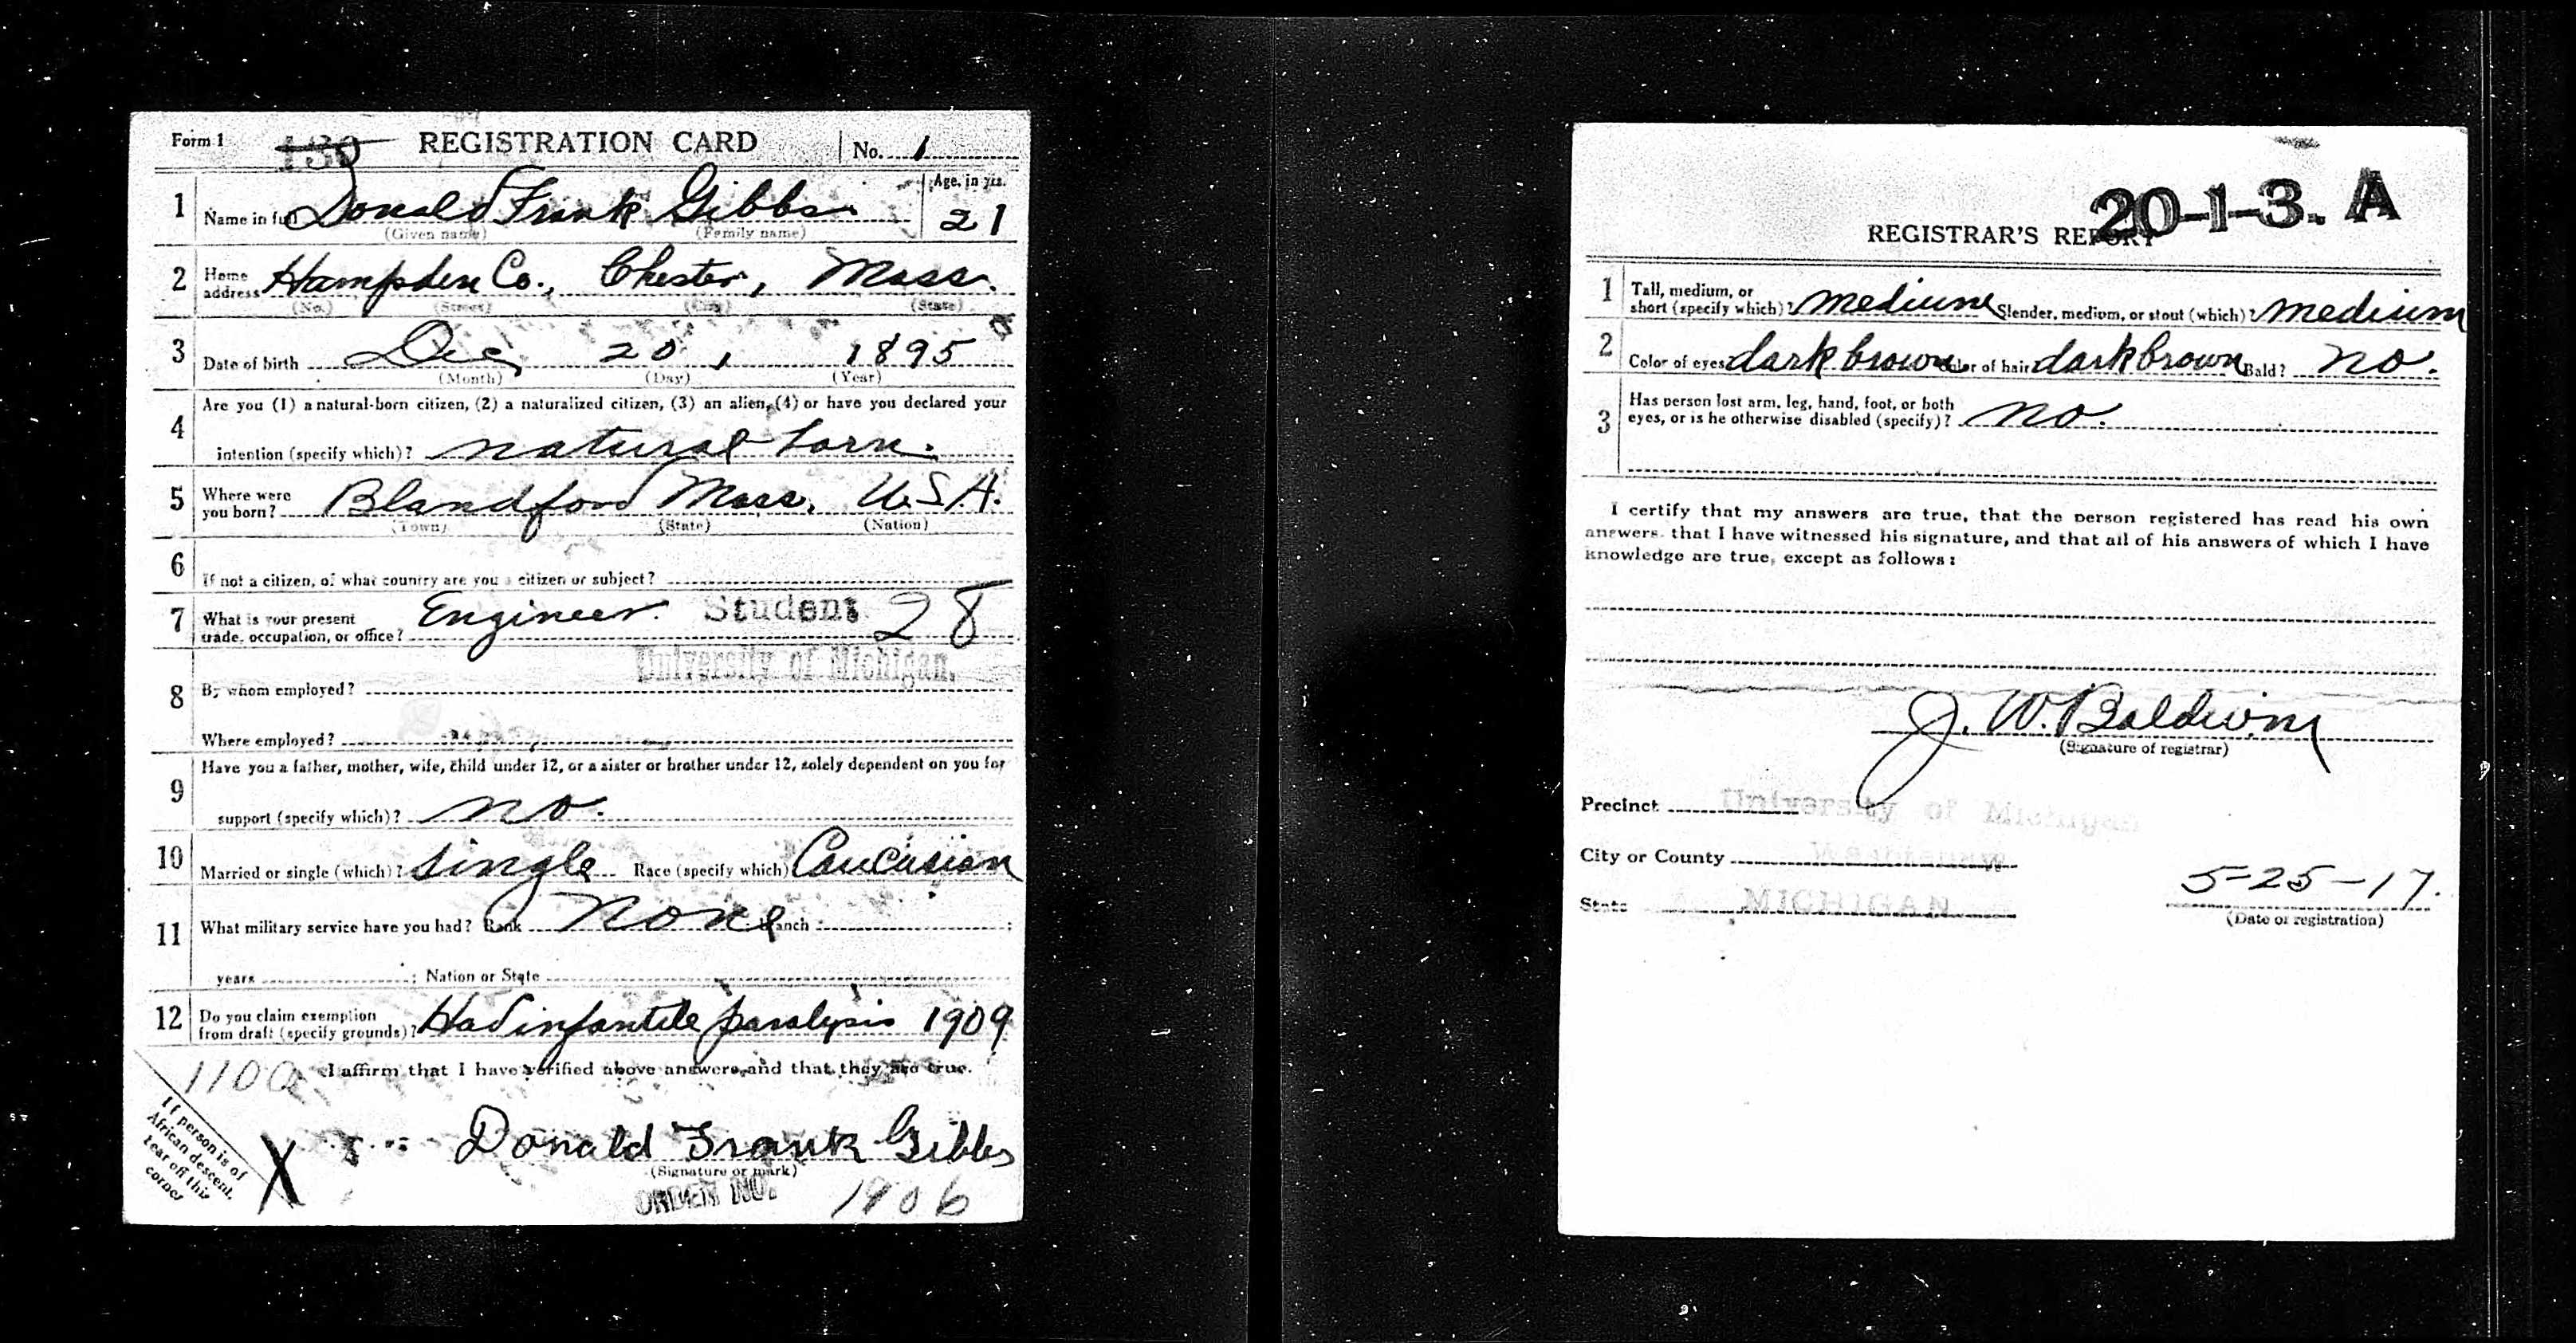 Form 1 130 REGISTRATION CARD No. 1
1 Name in full Donald Frank Gibbs. Age, in yrs. 21
(Given name) (Family name)
2 Home address Hampden Co., Chester, Mass.
(No.) (Street) (City) (State)
3 Date of birth Dec 20, 1895
(Month) (Day) (Year)
4 Are you (1) a natural-born citizen, (2) a naturalized citizen, (3) an alien, (4) or have you declared your
intention (specify which)? natural born.
5 Where were you born? Blandford Mass. U.S.A.
(Town) (State) (Nation)
6 If not a citizen, of what country are you a citizen or subject?
7 What is your present trade, occupation, or office? Engineer. Student 28
University of Michigan.
8 By whom employed?
Where employed?
9 Have you a father, mother, wife, child under 12, or a sister or brother under 12, solely dependent on you for
support (specify which)? no.
10 Married or single (which)? single Race (specify which) Caucasian
11 What military service have you had? Rank none Branch ;
years ; Nation or State
12 Do you claim exemption from draft (specify grounds)? Had infantile paralysis 1909
110a I affirm that I have verified above answers and that they are true.
X Donald Frank Gibbs
(Signature or mark)
ORDER NO. 1906
If person is of
African descent,
tear off this
corner
20-1-3. A
REGISTRAR'S REPORT
1 Tall, medium, or short (specify which)? medium Slender, medium, or stout (which)? medium
2 Color of eyes dark brown Color of hair dark brown Bald? no.
3 Has person lost arm, leg, hand, foot, or both
eyes, or is he otherwise disabled (specify)? no.
I certify that my answers are true, that the person registered has read his own
answers, that I have witnessed his signature, and that all of his answers of which I have
knowledge are true, except as follows:
J. W. Baldwin
(Signature of registrar)
Precinct University of Michigan
City or County Washtenaw
State MICHIGAN
5-25-17.
(Date of registration)